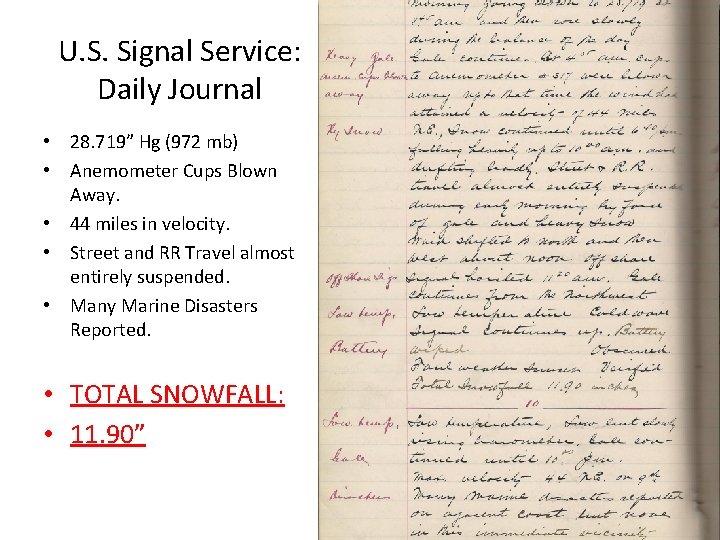 U.S. Signal Service:
Daily Journal
• 28.719” Hg (972 mb)
• Anemometer Cups Blown
Away.
• 44 miles in velocity.
• Street and RR Travel almost
entirely suspended.
• Many Marine Disasters
Reported.
• TOTAL SNOWFALL:
• 11.90”
morning going down to 28.719 at
am and then rose slowly
during the balance of the day
Heavy Gale
Gale continues. At 4 am cups
anem cups blown
to anemometer # 517 were blown
away
away up to that time the wind has
attained a velocity of 44 miles
Hy Snow
N.E., Snow continued until
falling heavily up to 10 am. and
drifting badly. Street & R.R.
travel almost entirely suspended
during early morning by force
of gale and heavy snow
Wind shifted to north and then
west about noon off shore
Off Shore Sigs
signal hoisted 11 am. Gale
continues from the Northwest
Low temp.
Low temperature Cold wave
signal continues up. Battery
Battery
wiped Obscured
Foul weather sunset Verified
Total Snowfall 11.90 inches
10
Low temp.
Low temperature, Low but slowly
rising barometer, Gale con-
Gale
tinued until 10 pm.
Max. velocity 44 N.E. on 9th
Disasters
Many Marine disasters reported
on adjacent coast but none
in this immediate vicinity